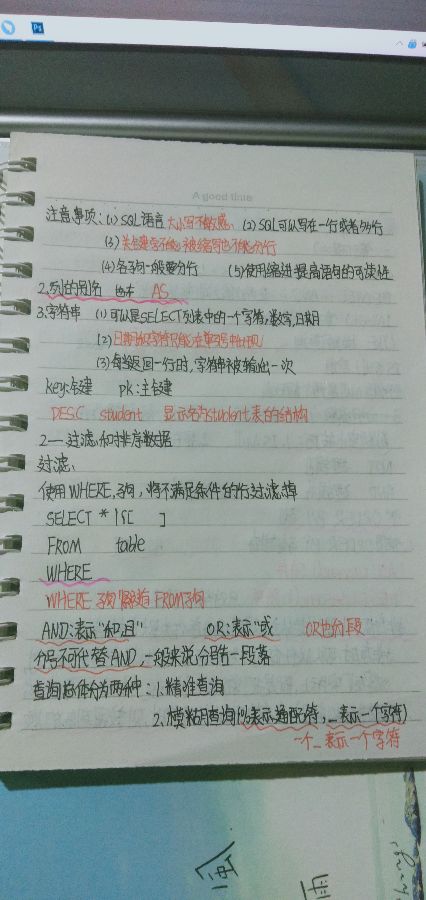 Ps
A good time
注意事项: (1) SQL语言大小写不敏感. (2) SQL可以写在一行或者多行
(3) 关键字不能被缩写也不能分行
(4) 各子句一般要分行 (5) 使用缩进提高语句的可读性
2.列的别名 AS
3.字符串 (1) 可以是SELECT列表中的一个字符,数字,日期
(2) 日期和字符只能在单引号中出现
(3) 每当返回一行时,字符串被输出一次
key:键 pk:主键
DESC student 显示名为student表的结构
2—过滤和排序数据
过滤:
使用WHERE子句,将不满足条件的行过滤掉
SELECT *|{[ ]
FROM table
WHERE
WHERE 子句紧随FROM子句
AND:表示"和且" OR:表示"或 OR也分段
分号不可代替AND,一般来说分号结一段落
查询总体分为两种: 1.精准查询
2.模糊查询(%表示通配符, _表示一个字符)
一个_表示一个字符